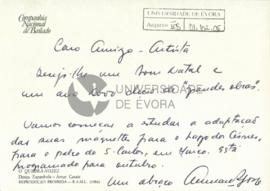 Companhia
Nacional
de Bailado
UNIVERSIDADE DE ÉVORA
Arquivo
Caro Amigo-Artista
Desejo-lhe um Bom Natal e
um ano novo cheio de "grandes obras".
Vamos começar a estudar a adaptação
das suas maquettes para o palco do
para o palco do S. Carlos, em Março. Está
programado para outubro.
Um abraço
UNIVERSIDADE
DE ÉVORA
O QUEBRA-NOZES
Dança Espanhola - Artur Casais
REPRODUÇÃO PROIBIDA